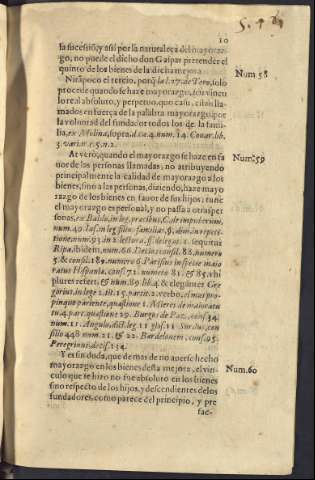 10
la sucessiõ, y assi por la naturaleza del mayoraz-
go, no puede el dicho don Gaspar pretender el
quinto de los bienes de la dicha mejora.
Ni tãpoco el tercio, porq̃ la l. 27. de Toro, solo
Num 58
procede quando se haze mayorazgo, con vincu
lo real absoluto, y perpetuo, que casu,
mados en fuerça de la palabra mayorazgo por
la voluntad del fundador todos los de la fami-
lia, ex Molina, supra, d. ca. 4. num. 14. Couar. lib.
3. variar. c. 5. n. 2.
At verò, quando el mayorazgo se haze en fa
Num. 59
uor de las personas llamadas, no atribuyendo
principalmente la calidad de mayorazgo a los
bienes, sino a las personas, diziendo, hazẽ mayo
razgo de los bienes en fauor de sus hijos: tunc
el mayorazgo es personal, y no passa a otras per-
sonas, ex Baldo, in leg. precibus, C. de impuberum,
num. 40. Ias. in leg. filiæ-familias, §. diui, in repeti-
tione, num. 93. in 2. lectura, ff. de legat. 1. sequitur
Ripa, ibidem, num. 66. Decius consil. 88. numero
5. & consil. 189. numero 9. Parisius in fœtor maio
ratus Hispania, cons. 72. numero 81. & 85. vbi
plures refert, & num. 89. lib. 4. & eleganter Gre
gorius, in lege 2. tit. 15. partit. 2. verbo, el mas pro-
pinquo pariente, quæstione 1. Mieres de maioratu
tu. 4. part. quæstione 29. Burgos de Paz, cons. 34.
num. 11. Angulo, dict. leg. 11. glos. 11. Surdus, con
silio 448. num. 21. & 22. Bardelonen. cons. 95.
Peregrinus, decis. 134.
Y es sin duda, que de mas de no auerse hecho
Num. 60
mayorazgo en los bienes desta mejora, el vin-
culo que se hizo no fue absoluto en los bienes
sino respecto de los hijos, y descendientes de los
fundadores, como parece del principio, y pre
fac-